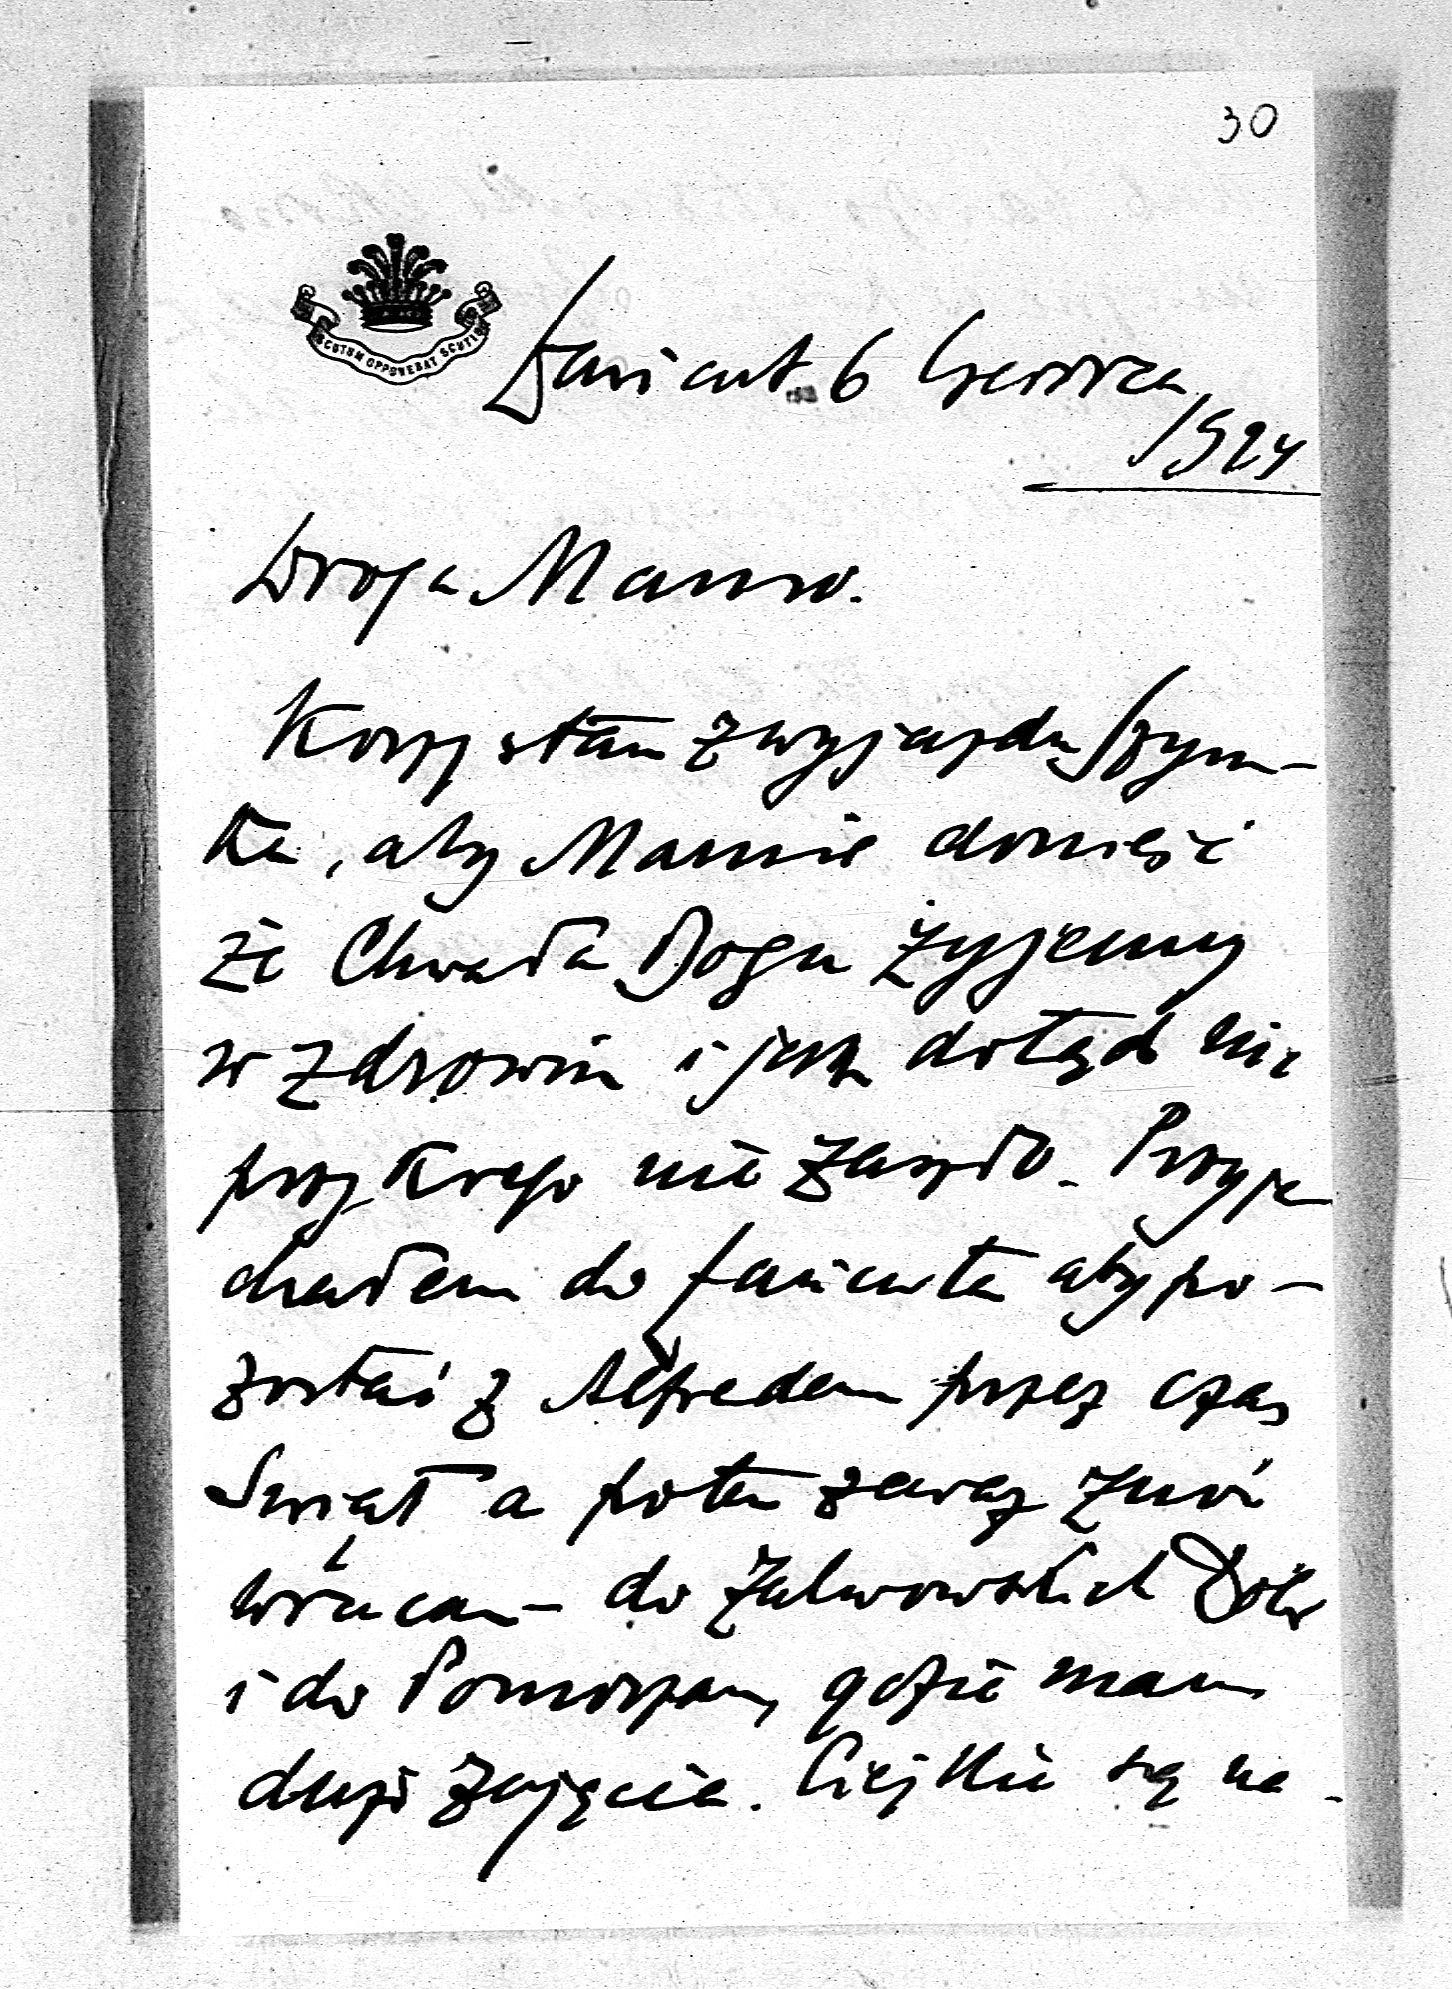 30
SCUTUM OPPONEBAT SCUTIS
Łańcut 6 Czerwca
1924
Droga Mamo.
Korzystam z wyjazdu Szym-
ka, aby Mamie donieść
że Chwała Bogu żyjemy
w zdrowiu i jak dotąd nic
przykrego nie zaszło. Przyje
chałem do Łańcuta aby po-
zostać z Alfredem przez czas
Świąt a potem zaraz znów
wracam - do Zalwowskich Dóbr
i do Pomorzan, gdzie mam
dużo zajęcia. Ciężkie są na-